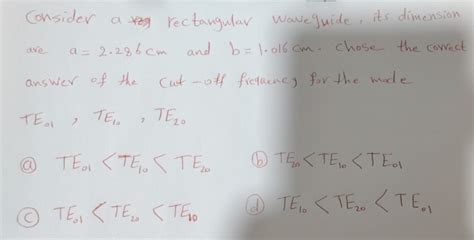 Consider a rectangular waveguide, its dimension
are a = 2.286 cm and b = 1.016 cm. Chose the correct
answer of the cut-off frequency for the mode
TE01 , TE10 , TE20
ⓐ TE01 < TE10 < TE20 ⓑ TE20 < TE10 < TE01
ⓒ TE01 < TE20 < TE10 ⓓ TE10 < TE20 < TE01